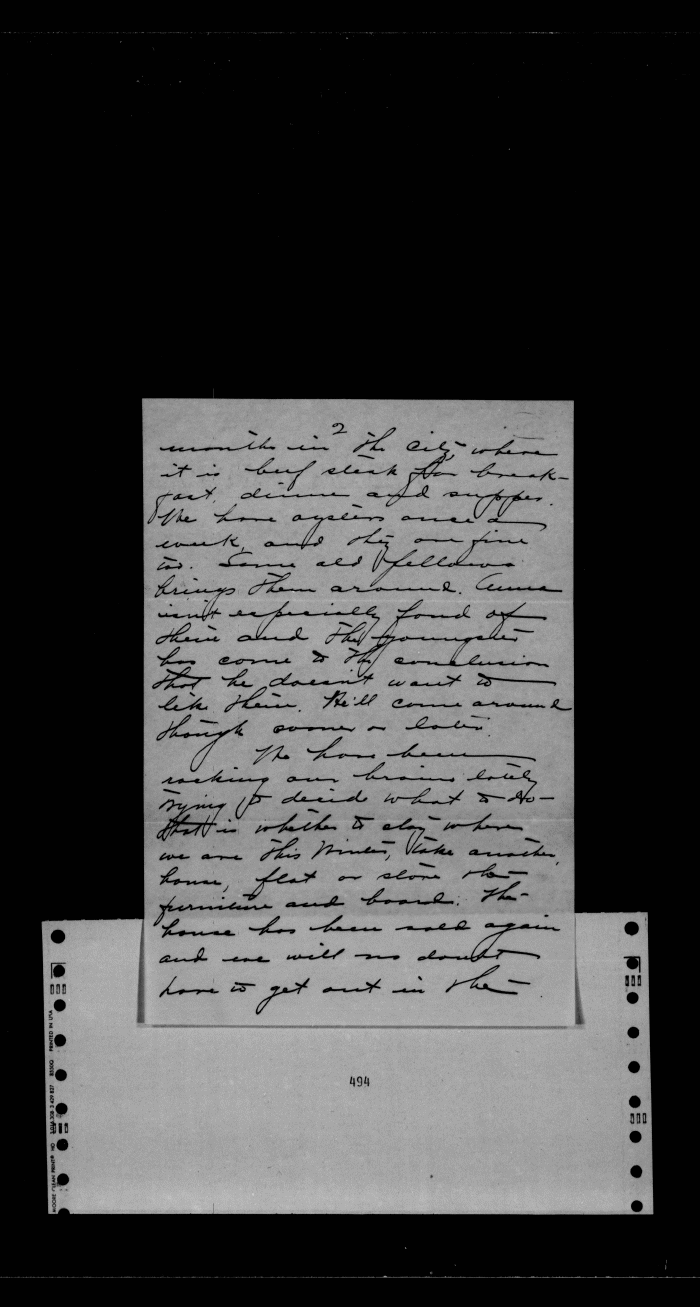 2
months in the city where
it is beef steak for break-
fast, dinner and supper.
We have oysters once a
week, and they are fine
too. Some old fellows
brings them around. Anna
isn't especially fond of
them and the youngster
has come to the conclusion
that he doesn't want to
like them. He'll come around
though sooner or later.
We have been
racking our brains lately
trying to decide what to do -
that is whether to stay where
we are this Winter, take another
house, flat or store the
furniture and board. The
house has been sold again
and we will no doubt
have to get out in the
494
PRINTED IN USA